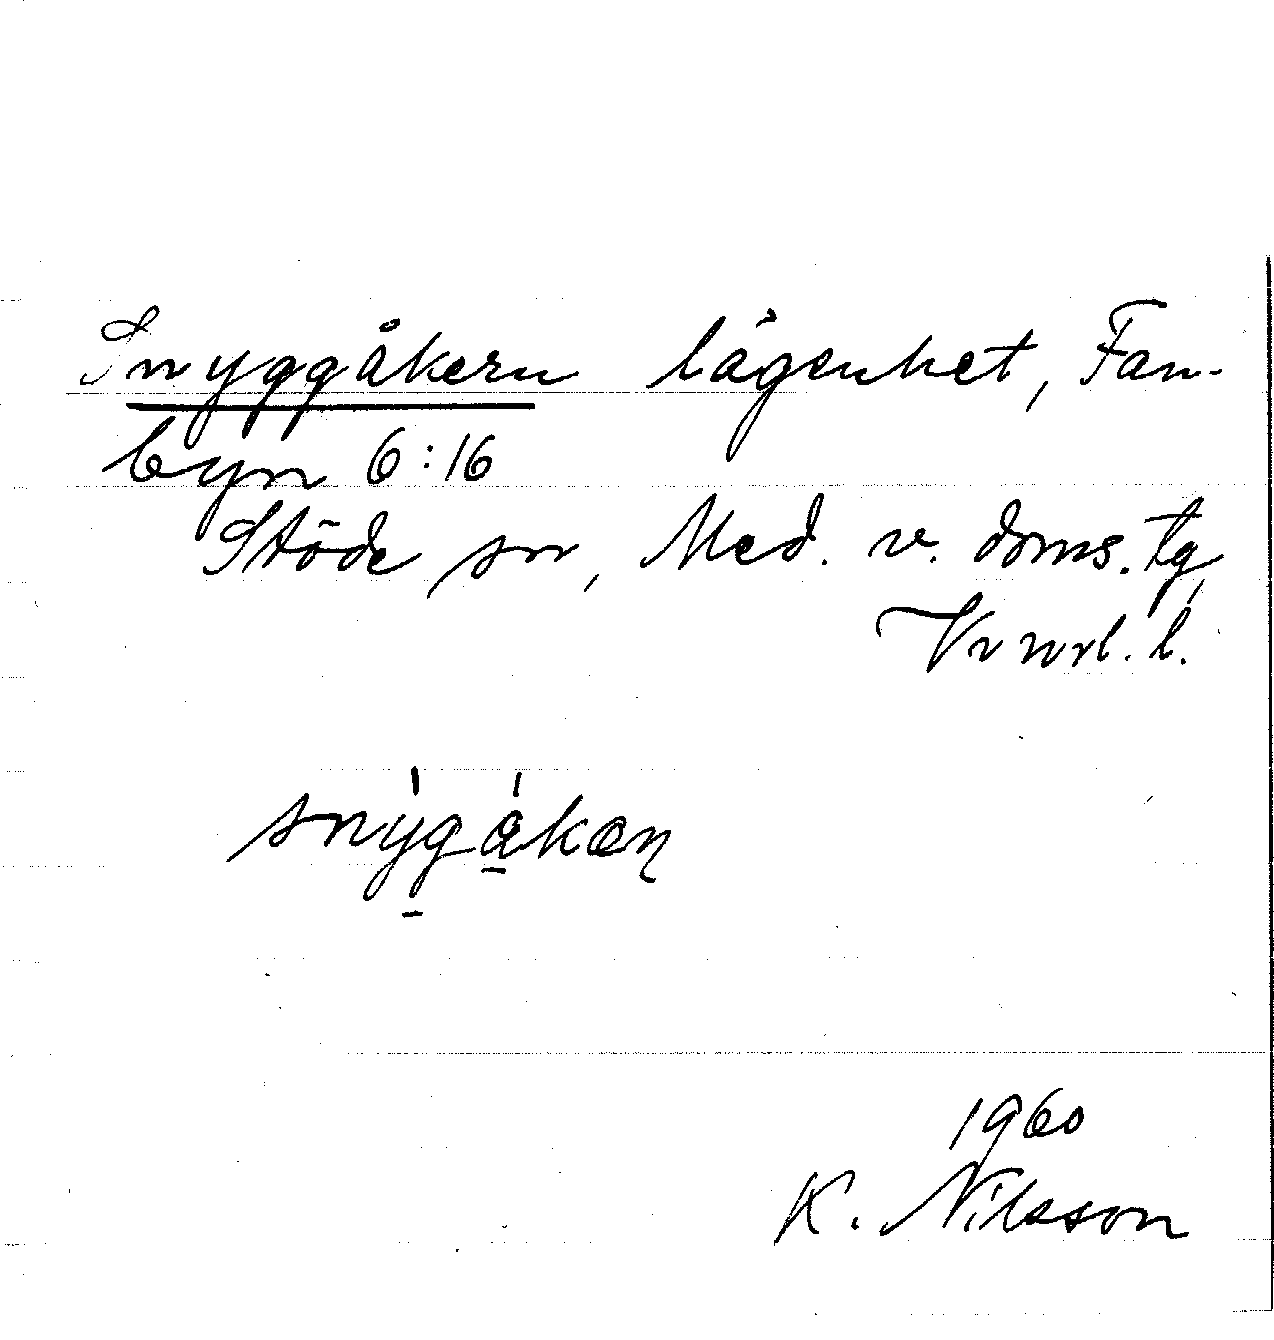 Snyggåkern lägenhet, Fan-
byn 6:16
Stöde sn, Med. v. doms. tg,
V:norl. l.
snýgǻkæɳ
1960
K. Nilsson